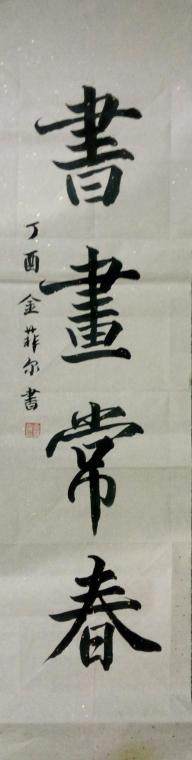 書畫常春
丁酉金菲尔書